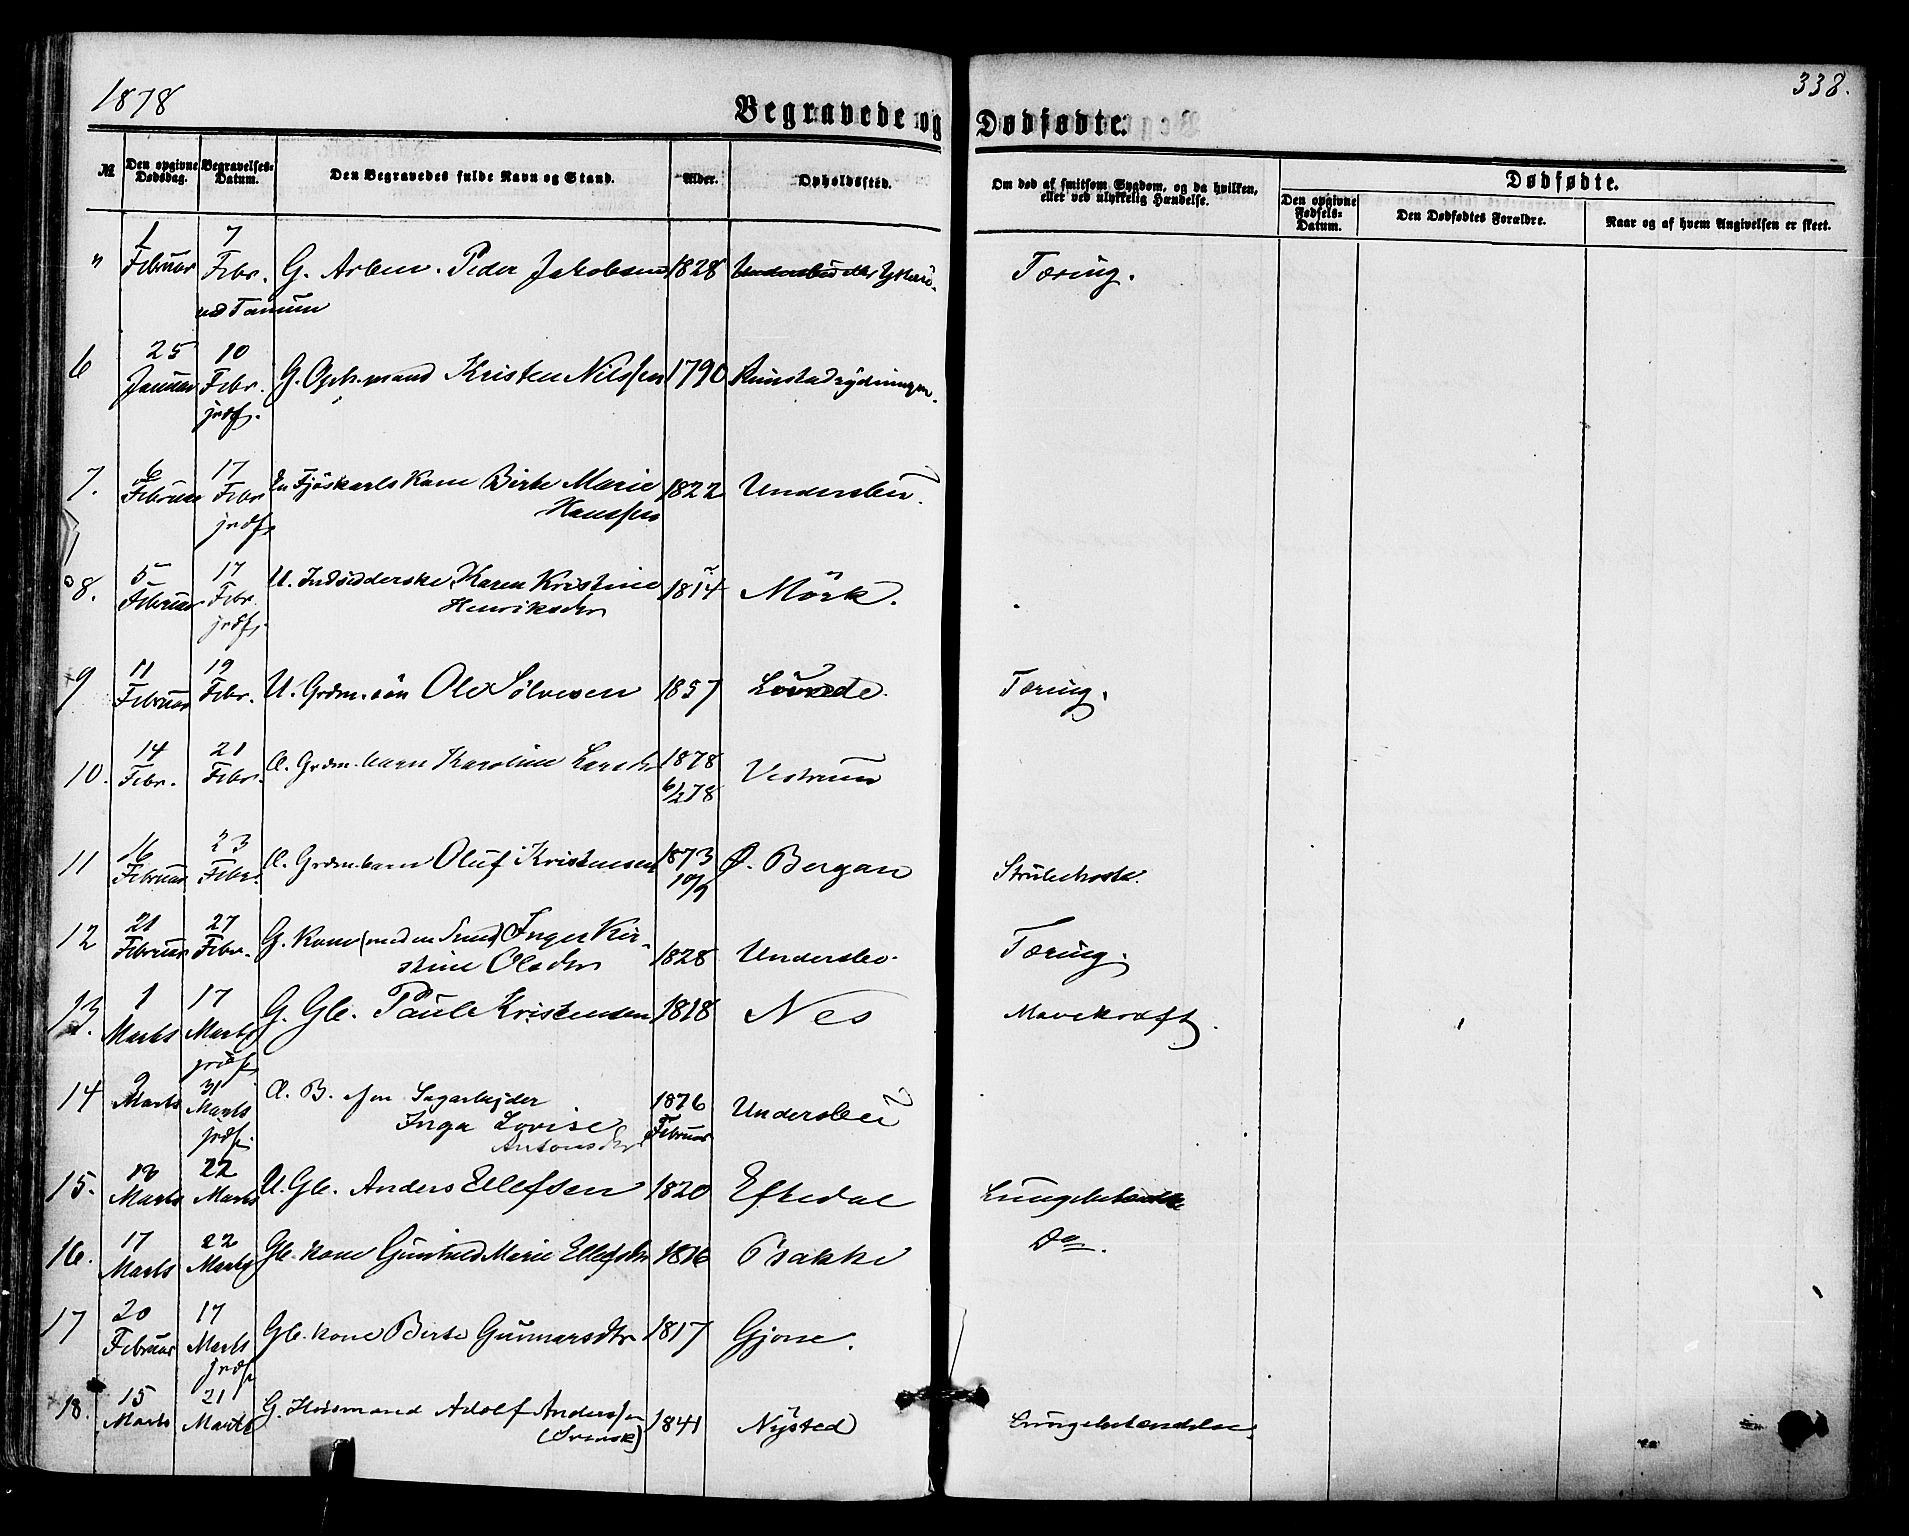 1878
338.
Begravede og Dødfødte.
№ Den opgivne Dødsdag. Begravelses-Datum. Den Begravedes fulde Navn og Stand. Alder. Opholdssted. Om død af smitsom Sygdom, og da hvilken, eller ved ulykkelig Hændelse. Dødfødte.
Den opgivne Fødsels-Datum. Den Dødfødtes Forældre. Naar og af hvem Angivelsen er skeet.
" 1 Februar 7 Febr. G. Arbm. Peder Jakobsen 1828 Tæring.
ved Tanum
6 25 Januar 10 Febr. G. mand Kristen Nilssen 1790 Rimstadrydningen.
jrdf.
7. 6 Februar 17 Febr En Fjöskarls Kone Birte Marie 1822 Undersbu
jrdf. Hanssen
8. 5 Februar 17 Febr. U. Indsidderske Karen Kristine 1814 Mörk.
jrdf. Henriksdr
9 11 Februar 19 Febr. U. Grdm. sön Ole Sölvesen 1857 Tæring.
10. 14 Febr. 21 Febr. Æ. Grdm. barn Karoline Larsdr 1878 Vestrum
6/2 78
11 16 Februar 23 Febr. Æ. Grdm. barn Oluf Kristensen 1873 Ø. Bergan Strubehoste.
10/9
12 21 Februar 27 Febr. G. Kone (med en Smed) Inger Kir- 1828 Undersbo. Tæring.
stine Olsdr
13. 1 Marts 17 Marts G. Gbr. Paul Kristensen 1818 Nes Mavekræft.
jrdf.
14 9 Marts 31 Marts Æ. B. af en Sagarbejder 1876 Undersbu
jrdf. Inga Lovise Februar
Antonsdr
15. 13 Marts 22 Marts U. Gbr. Anders Ellefsen 1820 Eftedal Lungebetændelse
16. 17 Marts 22 Marts Gbr. kone Gunhild Marie Ellefsdr 1816 Prakke Do.
17 20 Februar 17 Marts Gbr. kone Berte Gunnarsdtr 1817 Gjone.
jrdf.
18. 15 Marts 21 Marts G. Husmand Adolf Anderssen 1841 Nysted Lungebetændelse.
(Svensk)